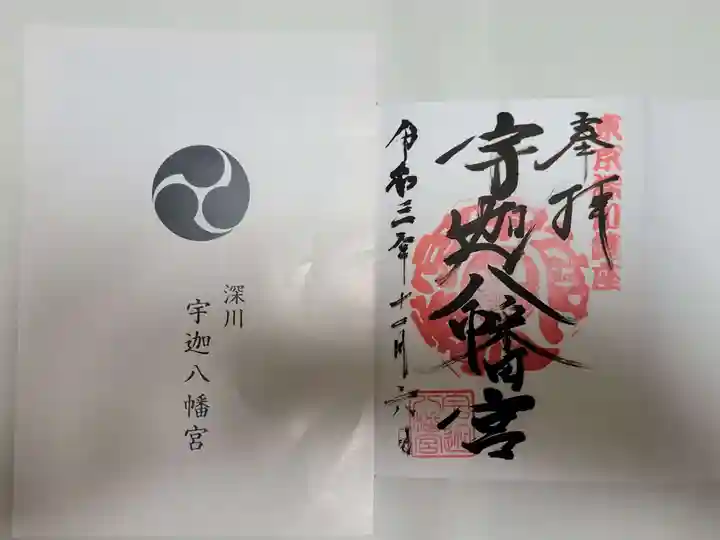 深川
宇迦八幡宮
奉拝
宇迦八幡宮
令和三年十一月六日